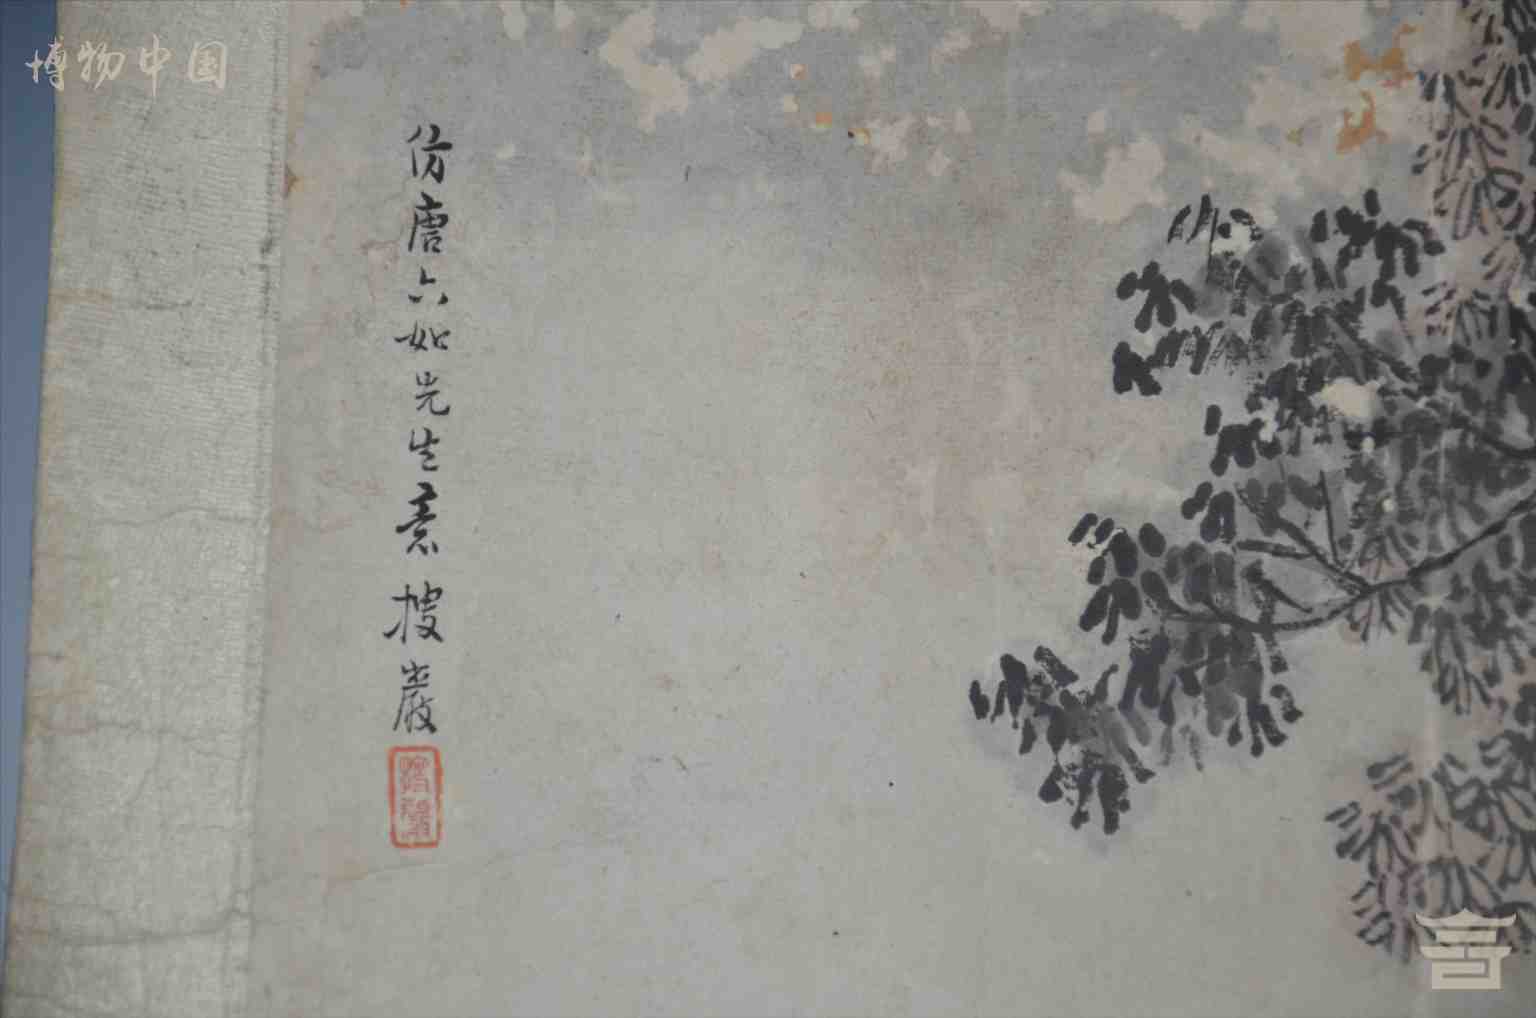 博物中国
仿唐六如先生意 搜巖